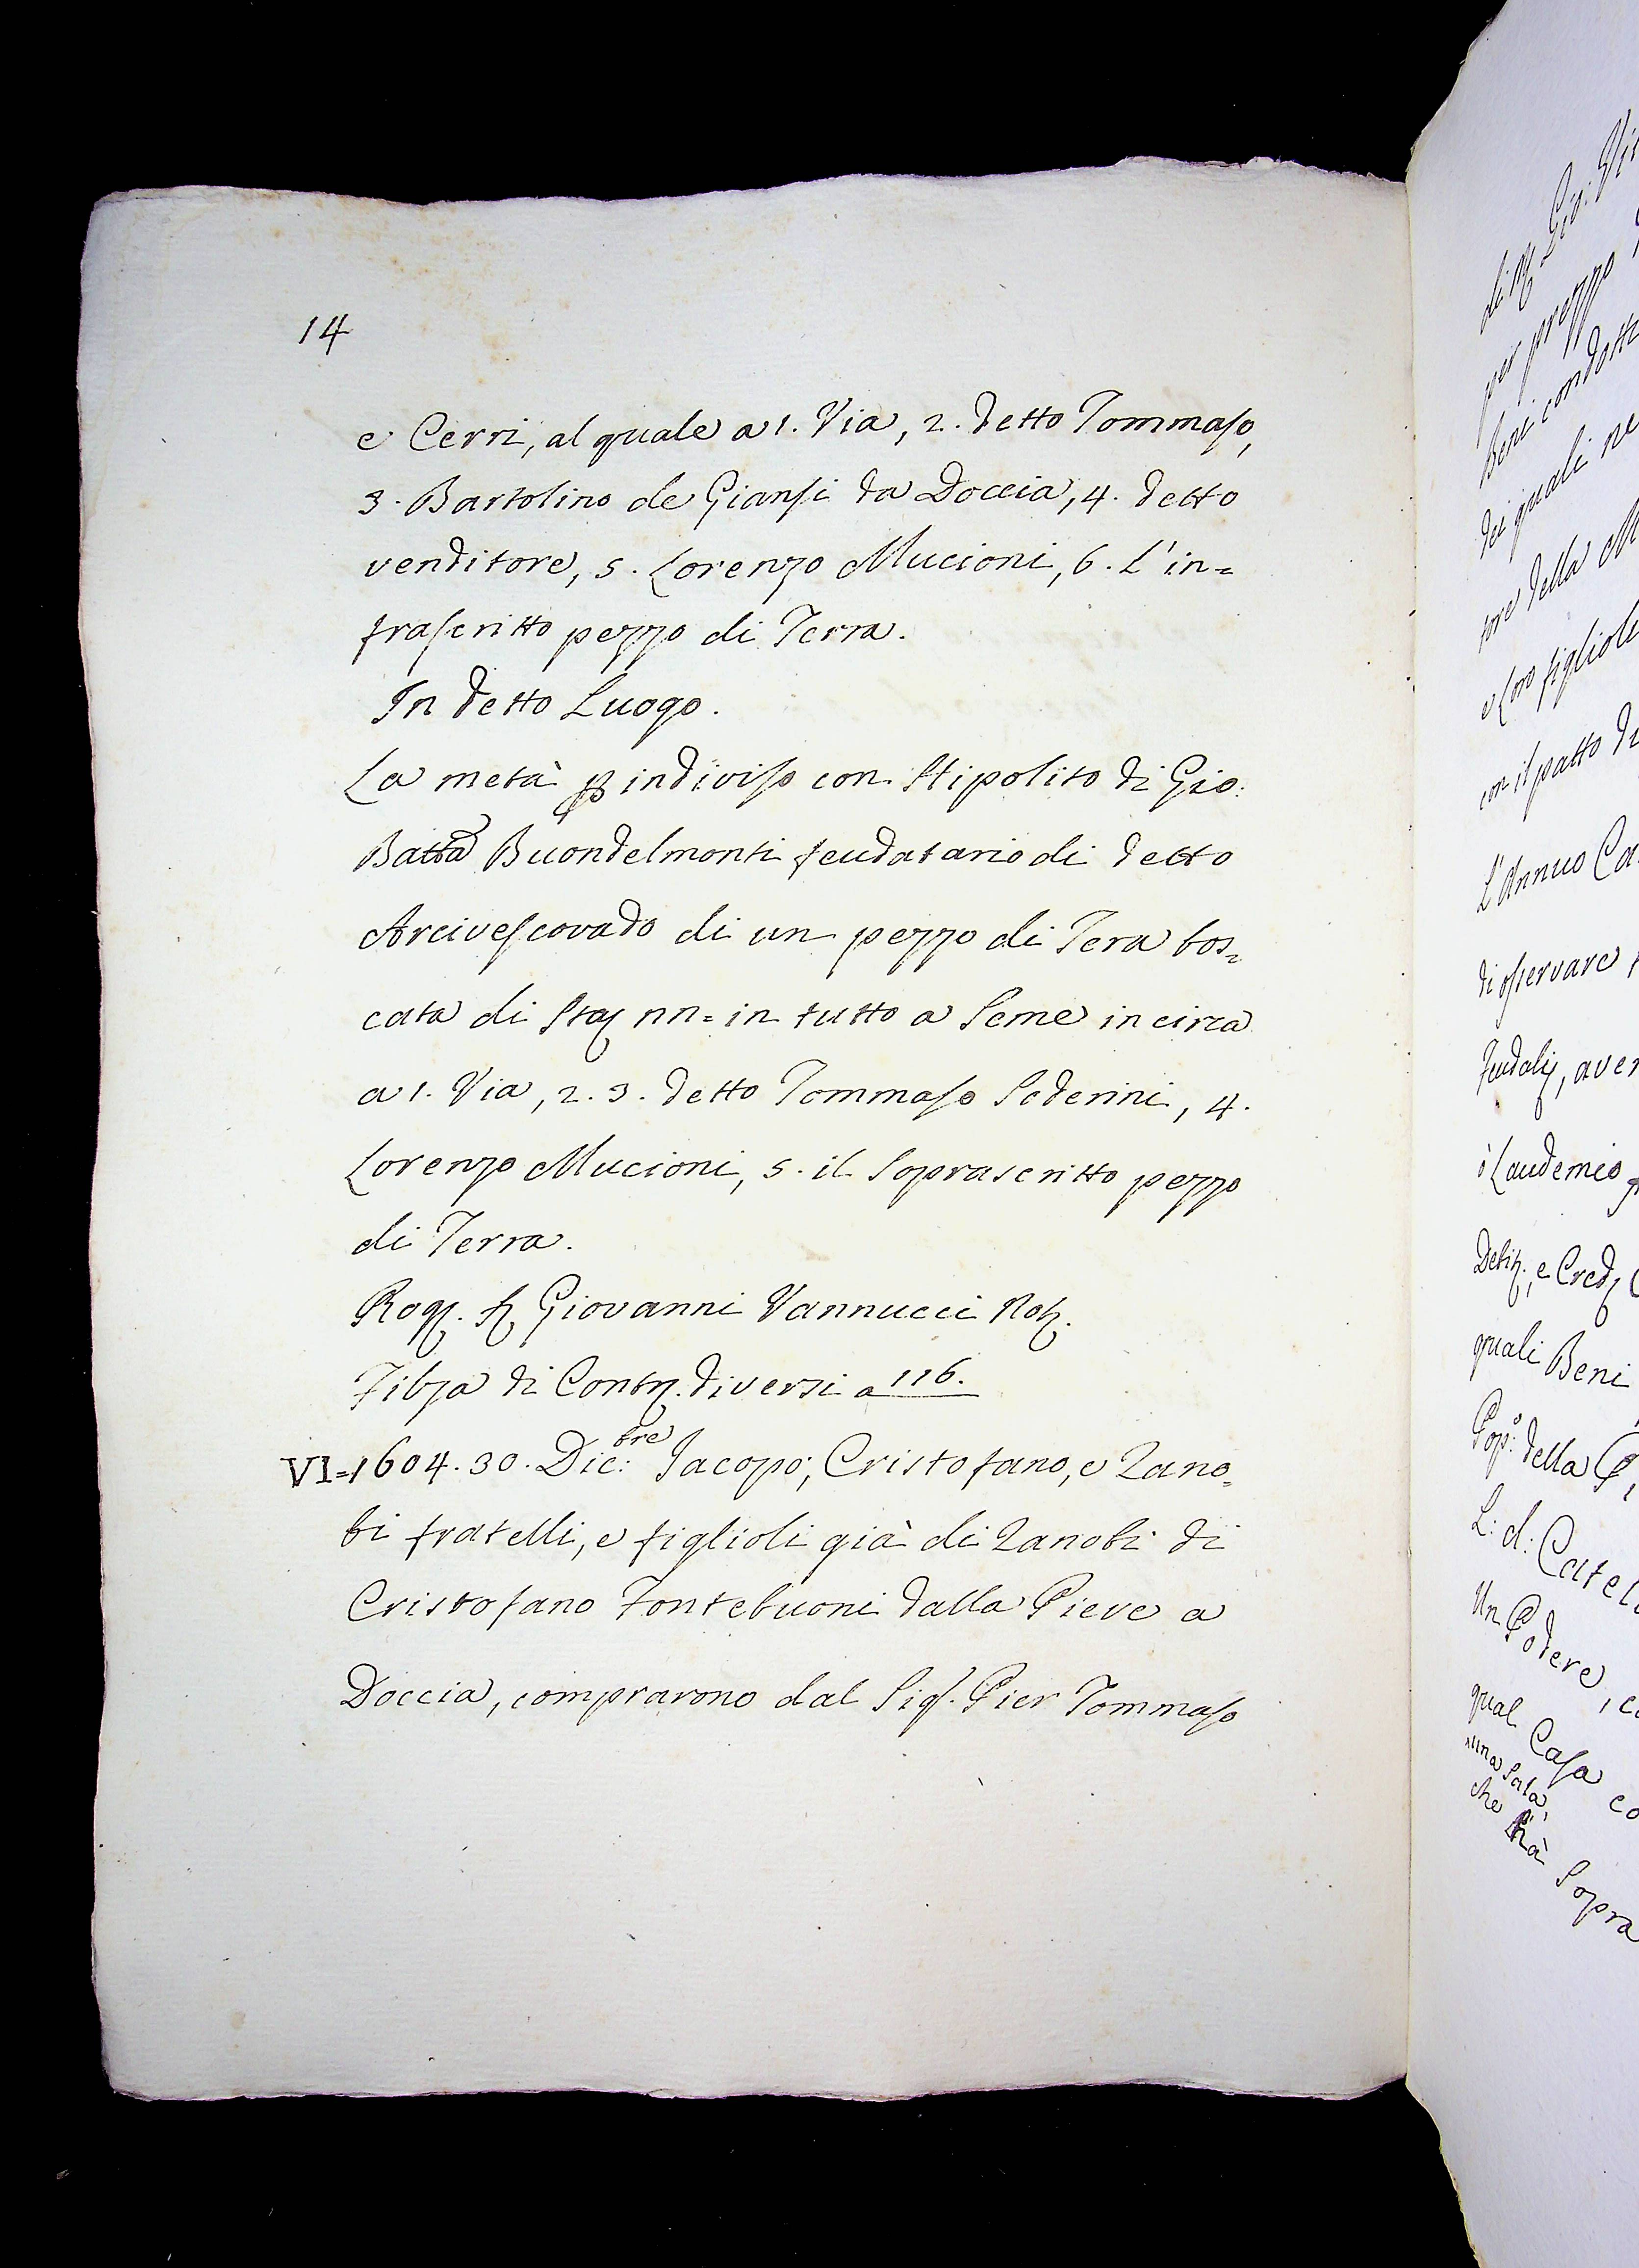 14
e Cerri, al quale a 1. Via, 2. detto Tommaso,
3. Bartolino de Giansi da Doccia, 4. detto
venditore, 5. Lorenzo Mucioni, 6. L'in=
frascritto pezzo di Terra.
In detto Luogo.
La metà p indiviso con Hipolito di Gio:
Batta Buondelmonti feudatario di detto
Arcivescovado di un pezzo di Tera bos=
cata di Sta nn= in tutto a Seme incirca
a 1. Via, 2. 3. detto Tommaso Soderini, 4.
Lorenzo Mucioni, 5. il Soprascritto pezzo
di Terra.
Rog. Giovanni Vannucci Not.
Filza di Contr. diversi a 116.
VI=1604. 30. Dic:bre Jacopo, Cristofano, e Zano=
bi fratelli, e figlioli già di Zanobi di
Cristofano Fontebuoni dalla Pieve a
Doccia, comprarono dal Sig. Pier Tommaso
per prezzo
Beni condotti
dei quali ne
tore della M
e loro figlioli
con il patto di
L'Annuo Ca
di osservare
Feudali, aver
ò Laudemio
Debit., e Cred.
quali Beni
Pop.o della P
L: d: Catel
Un Podere, c
qual Casa co
una Sala,
che hà Sopra